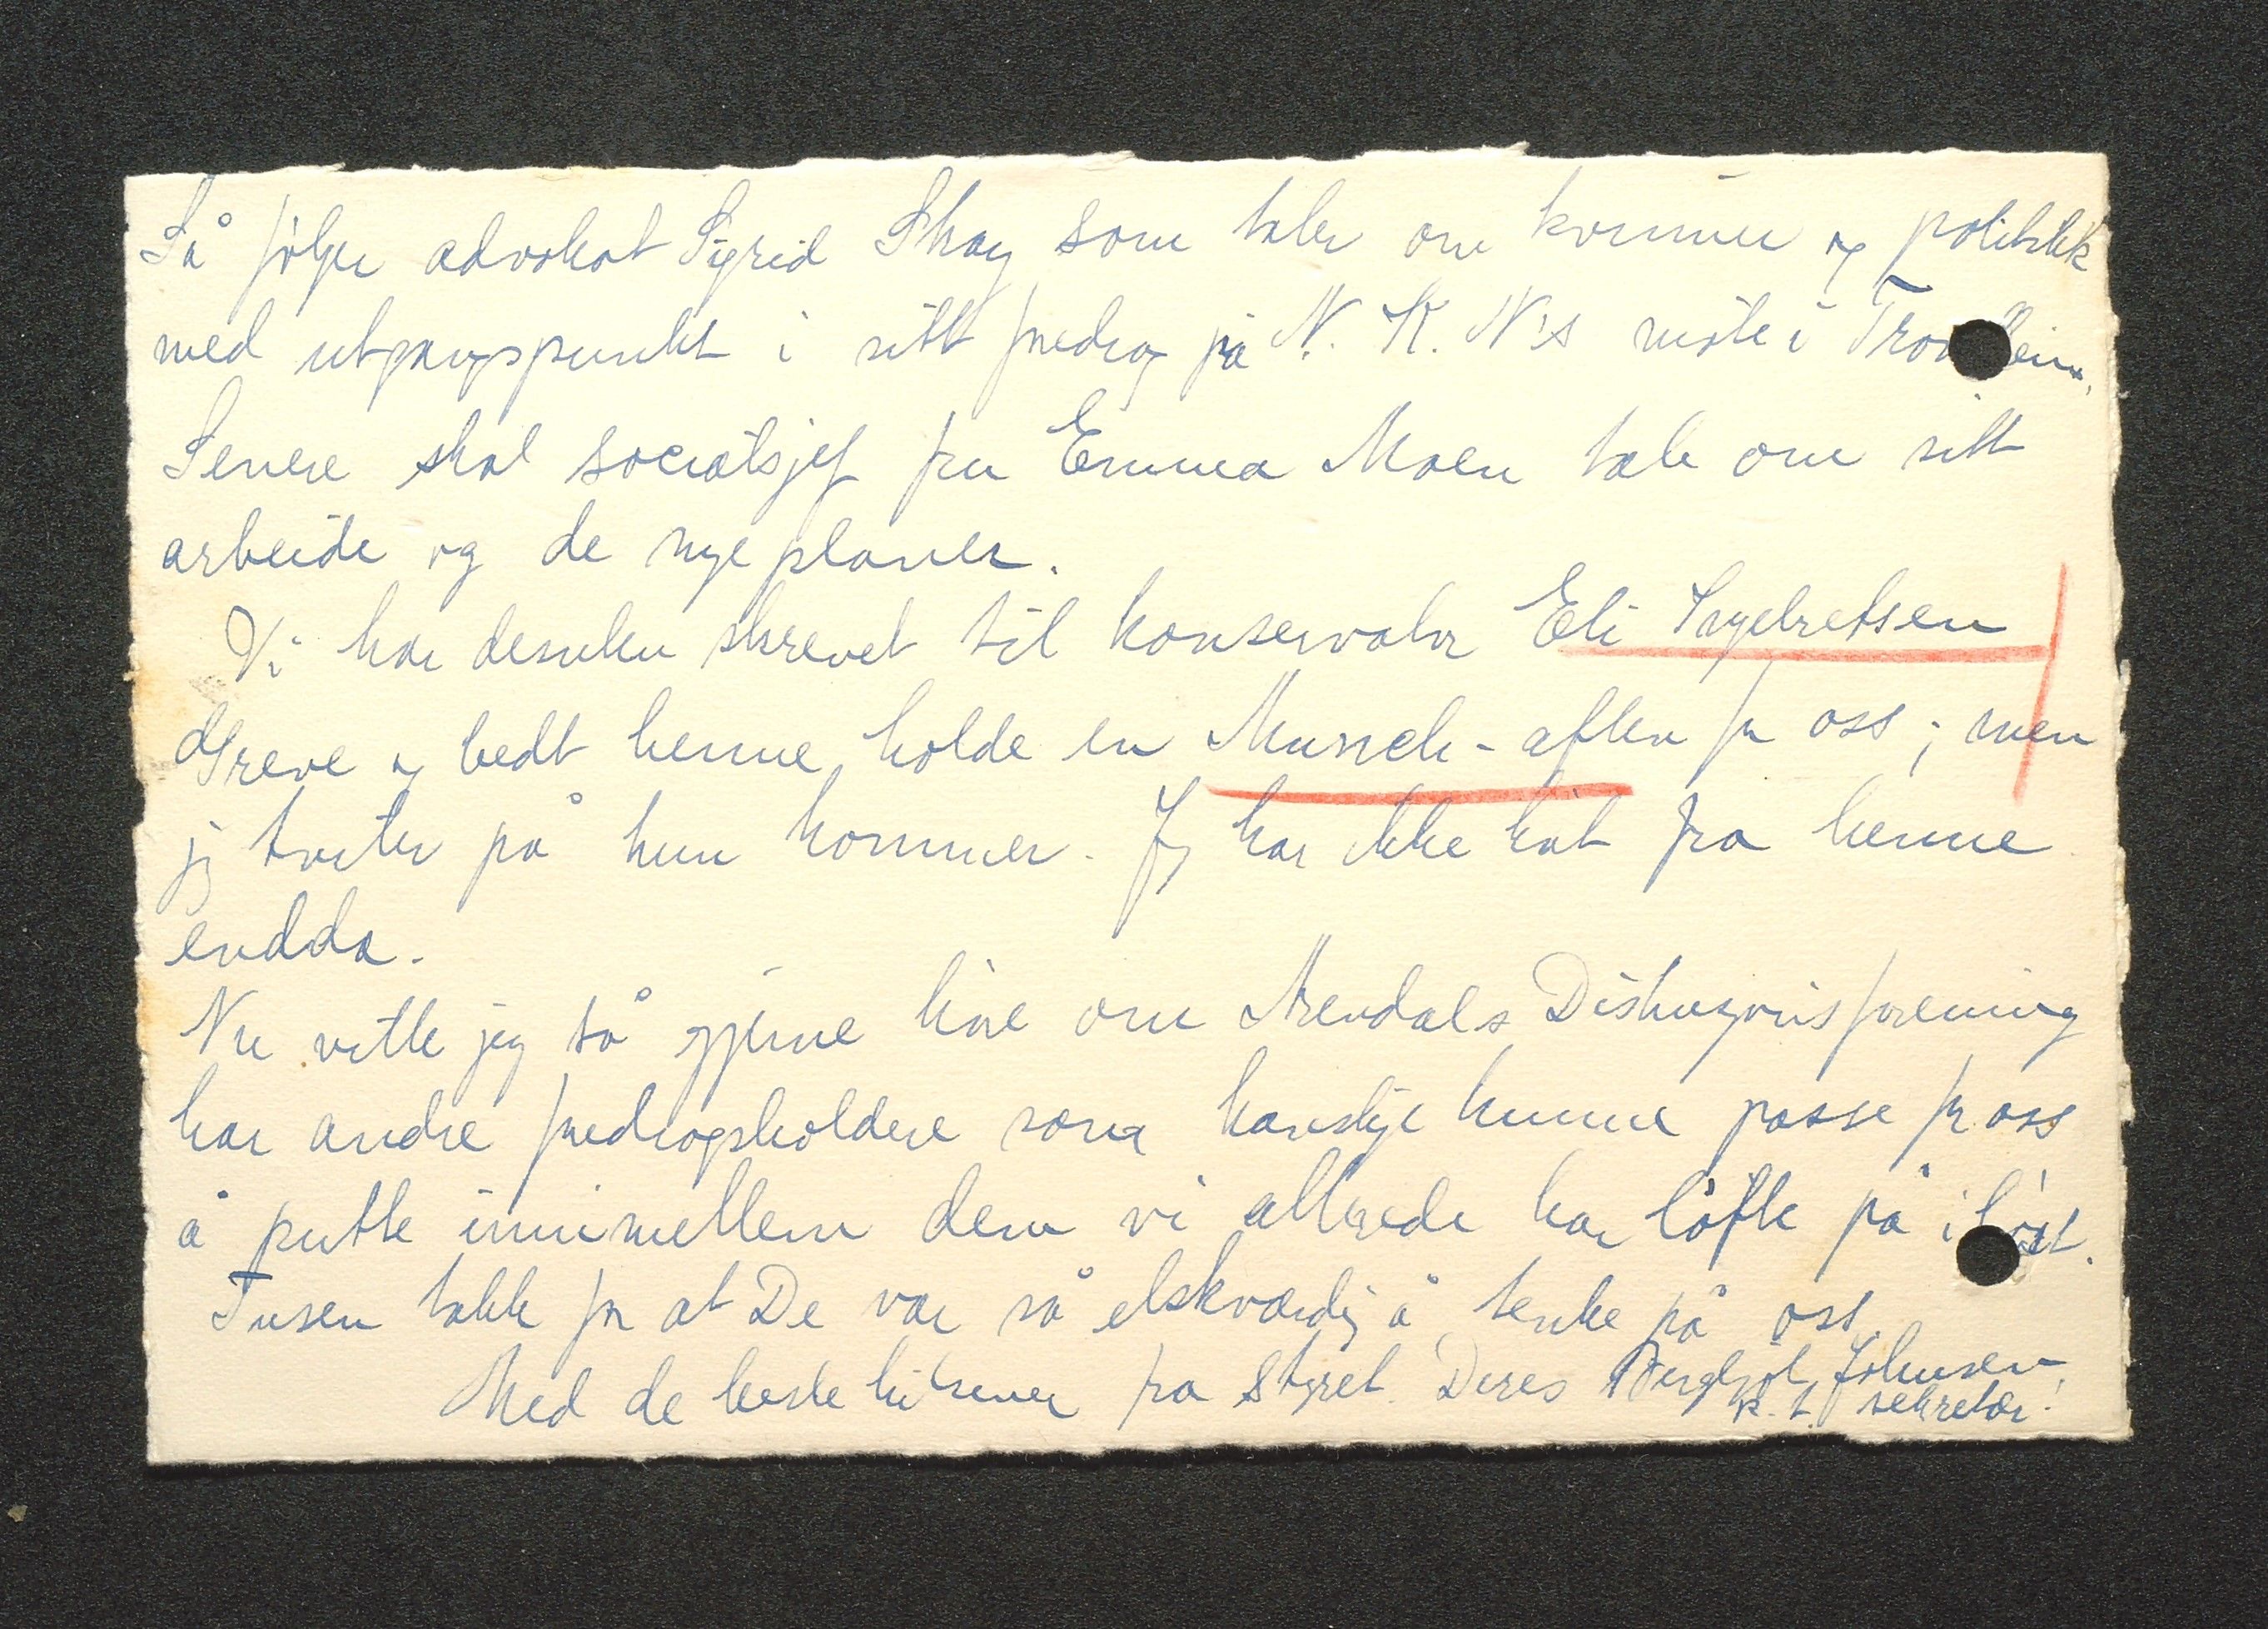 Så følger advokat Sigrid Skaug som taler om kvinner og politikk
med utgangspunkt i sitt foredrag på N. K. N's møte i Trondheim.
Senere skal socialsjef fru Emma Moen tale om sitt
arbeide og de nye planer.
Vi har desuten skrevet til konservator Eli Ingebretsen
Greve og bedt henne holde en Munch-aften for oss; men
jeg tviler på hun kommer. Jeg har ikke hørt fra henne
endda.
Nu ville jeg så gjerne høre om Arendals Diskusjonsforening
har andre foredragsholdere som kanskje kunne passe for oss
å putte innimellem dem vi allerede har løfte på i høst.
Tusen takk for at De var så elskværdig å tenke på oss.
Med de beste hilsener fra styret. Deres Bergljot Johnsen,
p. t. sekretær.